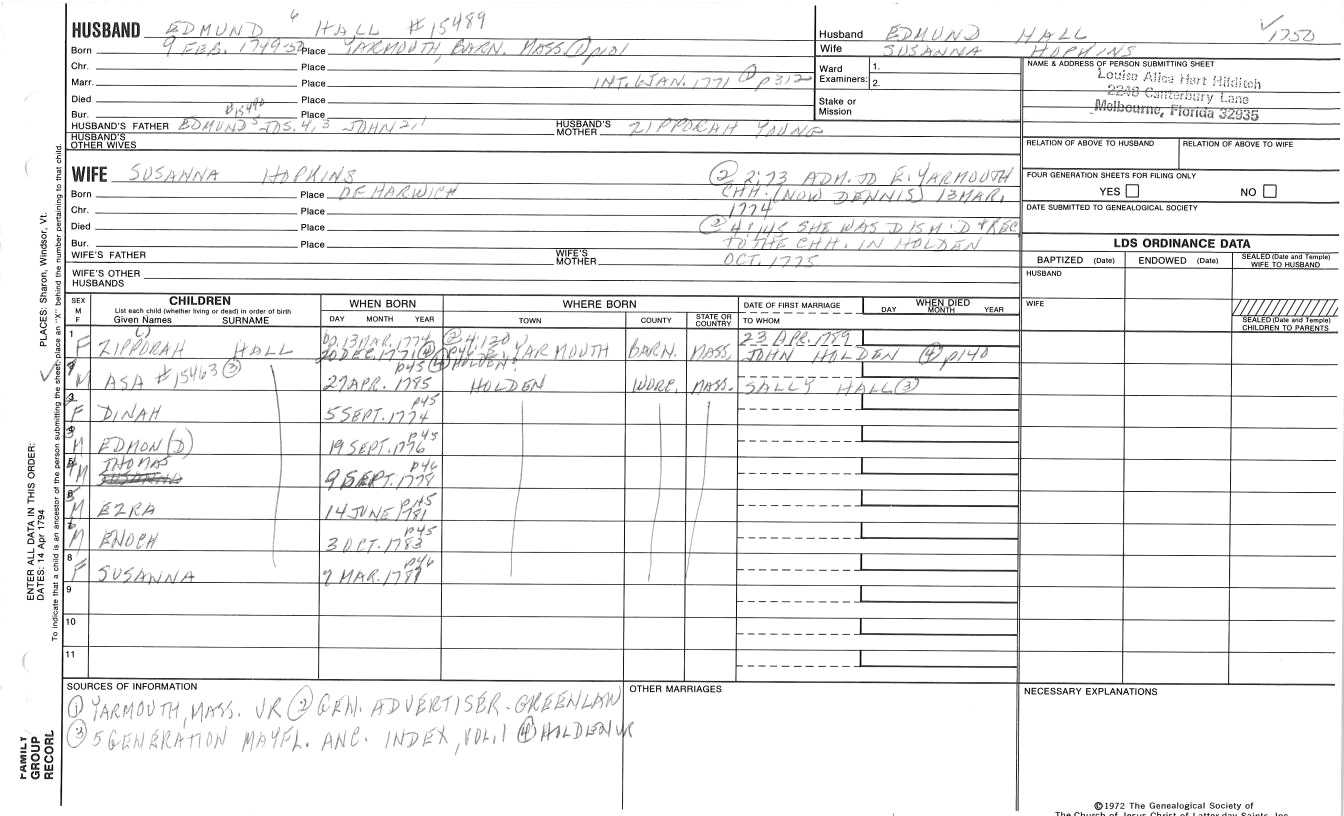 HUSBAND EDMUND 6 HALL #15489
Born 9 FEB. 1749-50 Place YARMOUTH, BARN. MASS. ① p101
Chr. Place
Marr. Place INT. 6 JAN. 1771 ① p312
Died Place
Bur. #15490 Place
HUSBAND'S FATHER EDMUND 5 JOS. 4, 3 JOHN 2, 1 HUSBAND'S MOTHER ZIPPORAH YOUNG
HUSBAND'S OTHER WIVES
Husband EDMUND HALL ✓ 1750
Wife SUSANNA HOPKINS
Ward 1.
Examiners: 2.
Stake or Mission
NAME & ADDRESS OF PERSON SUBMITTING SHEET
Louise Alice Hart Hilditch
2240 Canterbury Lane
Melbourne, Florida 32935
RELATION OF ABOVE TO HUSBAND RELATION OF ABOVE TO WIFE
FOUR GENERATION SHEETS FOR FILING ONLY
YES NO
DATE SUBMITTED TO GENEALOGICAL SOCIETY
WIFE SUSANNA HOPKINS
Born Place OF HARWICH
Chr. Place
Died Place
Bur. Place
WIFE'S FATHER WIFE'S MOTHER
WIFE'S OTHER HUSBANDS
② 2:73 ADM. TO E. YARMOUTH
CHH. (NOW DENNIS) 13 MAR.
1774
② 4:145 SHE WAS DISM'D & REC
TO THE CHH. IN HOLDEN
OCT. 1775
LDS ORDINANCE DATA
BAPTIZED (Date) ENDOWED (Date) SEALED (Date and Temple) WIFE TO HUSBAND
HUSBAND
WIFE
SEALED (Date and Temple) CHILDREN TO PARENTS
SEX M F CHILDREN List each child (whether living or dead) in order of birth Given Names SURNAME
WHEN BORN DAY MONTH YEAR
WHERE BORN TOWN COUNTY STATE OR COUNTRY
DATE OF FIRST MARRIAGE TO WHOM
WHEN DIED DAY MONTH YEAR
1 F ZIPPORAH HALL bp. 13 MAR. 1774 ② 4:120 20 DEC. 1771 ④ p46 E. YARMOUTH BARN. MASS. 23 APR. 1789 JOHN HOLDEN ④ p140
M ASA #15463 ③ 27 APR. 1785 p45 ④ HOLDEN HOLDEN WORC. MASS. SALLY HALL ③
F DINAH 5 SEPT. 1774 p45
M EDMON (D) 19 SEPT. 1776 p45
M THOMAS SUSANNA 9 SEPT. 1778 p46
M EZRA 14 JUNE 1781 p45
M ENOCH 3 OCT. 1783 p45
8 F SUSANNA 7 MAR. 1787 p46
9
10
11
SOURCES OF INFORMATION
① YARMOUTH, MASS. VR ② GEN. ADVERTISER-GREENLAW
③ 5 GENERATION MAYFL. ANC. INDEX, VOL. 1 ④ HOLDEN VR
OTHER MARRIAGES
NECESSARY EXPLANATIONS
©1972 The Genealogical Society of
The Church of Jesus Christ of Latter-day Saints, Inc.
PLACES: Sharon, Windsor, Vt.
ENTER ALL DATA IN THIS ORDER:
DATES: 14 Apr 1794
To indicate that a child is an ancestor of the person submitting the sheet, place an "X" behind the number pertaining to that child.
FAMILY GROUP RECORD